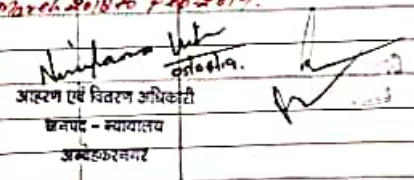 March 2018 to Feb 2019.
05/04/19.
आहरण एवं वितरण अधिकारी
जनपद - न्यायालय
अम्बेडकरनगर